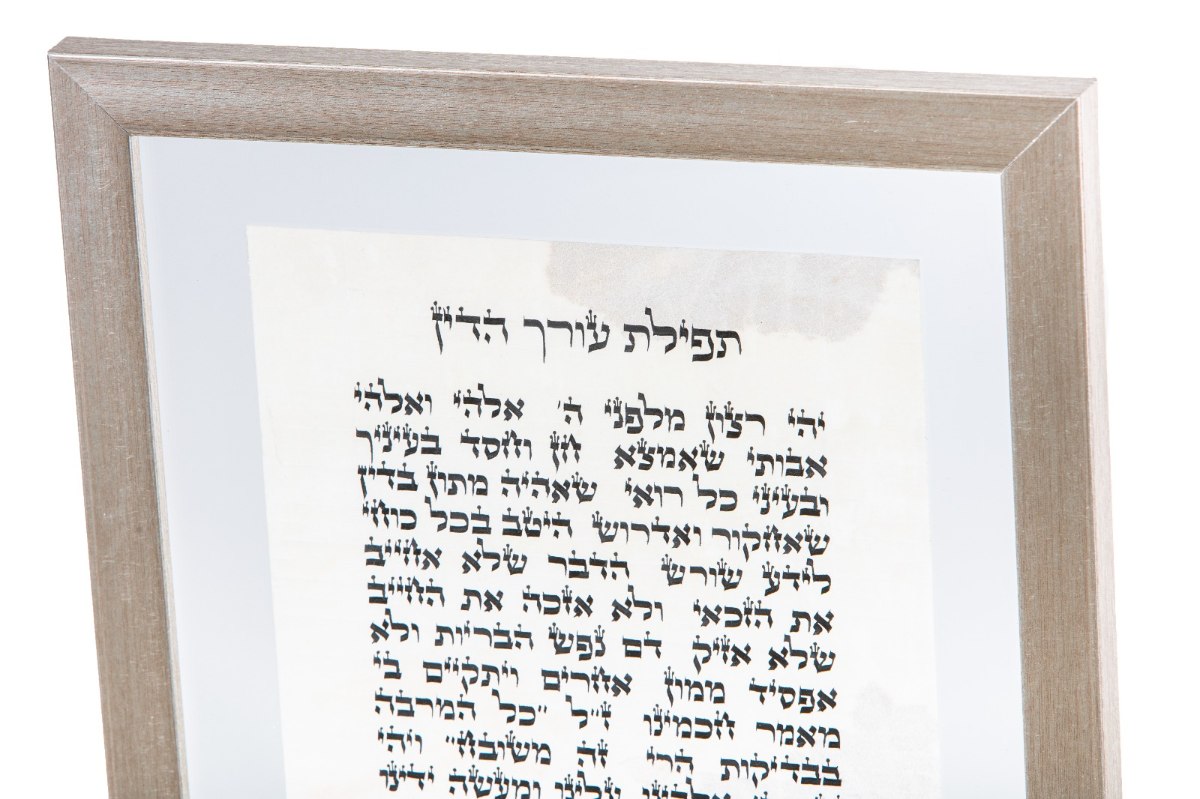 תפילת עורך הדין
יהי רצון מלפני ה' אלהי ואלהי
אבותי שאמצא חן וחסד בעיניך
ובעיני כל רואי שאהיה מתון בדין
שאחקור ואדרוש היטב בכל כוחי
לידע שורש הדבר שלא אחייב
את הזכאי ולא אזכה את החייב
שלא אזיק דם נפש הבריות ולא
אפסיד ממון אחרים ויתקיים בי
מאמר חכמינו ז"ל "כל המרבה
בבדיקות הרי זה משובח" ויהי
עלינו ומעשה ידינו